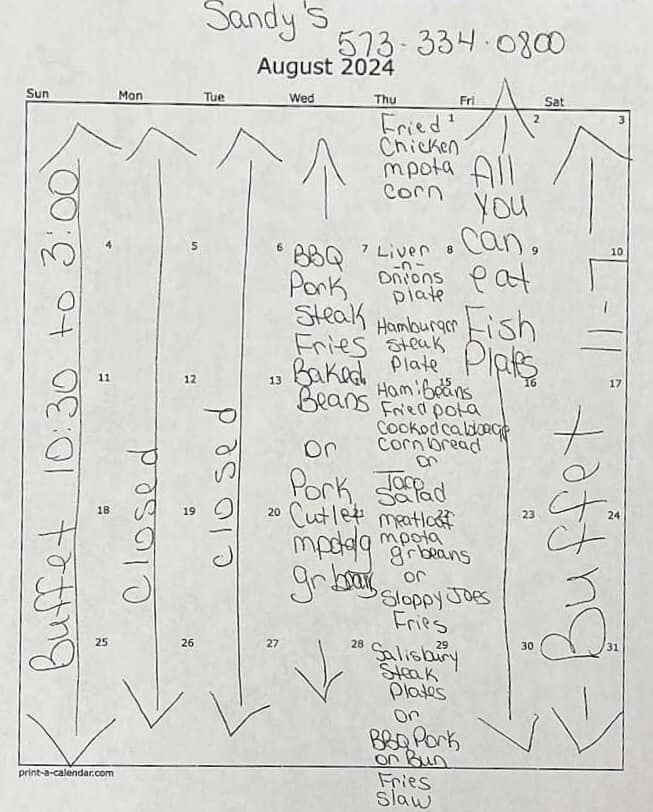 Sandy's
573-334-0800
August 2024
Sun Mon Tue Wed Thu Fri Sat
1 2 3
4 5 6 7 8 9 10
11 12 13 15 16 17
18 19 20 22 23 24
25 26 27 28 29 30 31
Buffet 10:30 to 3:00
Closed
Closed
BBQ
Pork
Steak
Fries
Baked
Beans
or
Pork
Cutlet
mpota
gr beans
Fried
Chicken
mpota
corn
Liver
-n-
Onions
plate
Hamburger
Steak
Plate
Ham/Beans
Fried pota
Cooked cabbage
Cornbread
or
Taco
Salad
meatloaf
mpota
gr beans
or
Sloppy Joes
Fries
Salisbury
Steak
Plates
or
BBQ Pork
on Bun
Fries
Slaw
All
You
Can
eat
Fish
Plates
Buffet 11-7
print-a-calendar.com